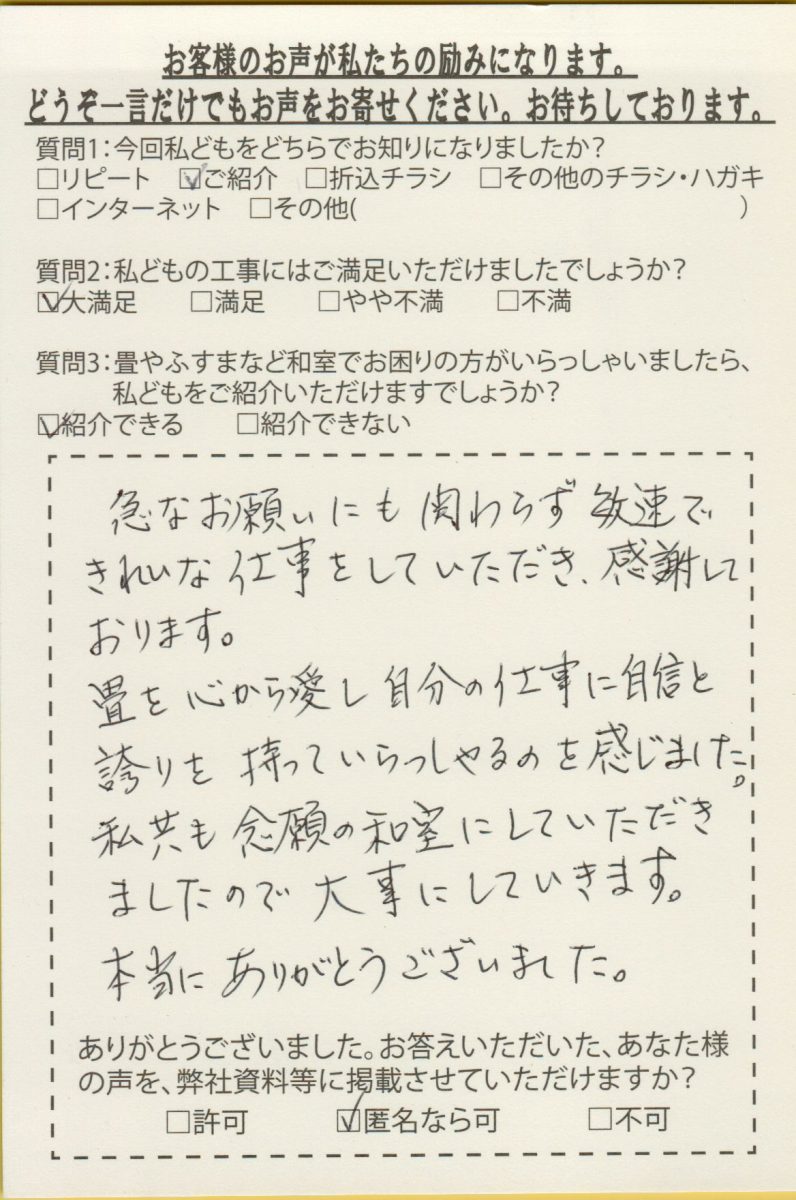 お客様のお声が私たちの励みになります。
どうぞ一言だけでもお声をお寄せください。お待ちしております。
質問1:今回私どもをどちらでお知りになりましたか?
□リピート ☑ご紹介 □折込チラシ □その他のチラシ・ハガキ
□インターネット □その他( )
質問2:私どもの工事にはご満足いただけましたでしょうか?
☑大満足 □満足 □やや不満 □不満
質問3:畳やふすまなど和室でお困りの方がいらっしゃいましたら、
私どもをご紹介いただけますでしょうか?
☑紹介できる □紹介できない
急なお願いにも関わらず敏速で
きれいな仕事をしていただき、感謝して
おります。
畳を心から愛し自分の仕事に自信と
誇りを持っていらっしゃるのを感じました。
私共も念願の和室にしていただき
ましたので大事にしていきます。
本当にありがとうございました。
ありがとうございました。お答えいただいた、あなた様
の声を、弊社資料等に掲載させていただけますか?
□許可 ☑匿名なら可 □不可